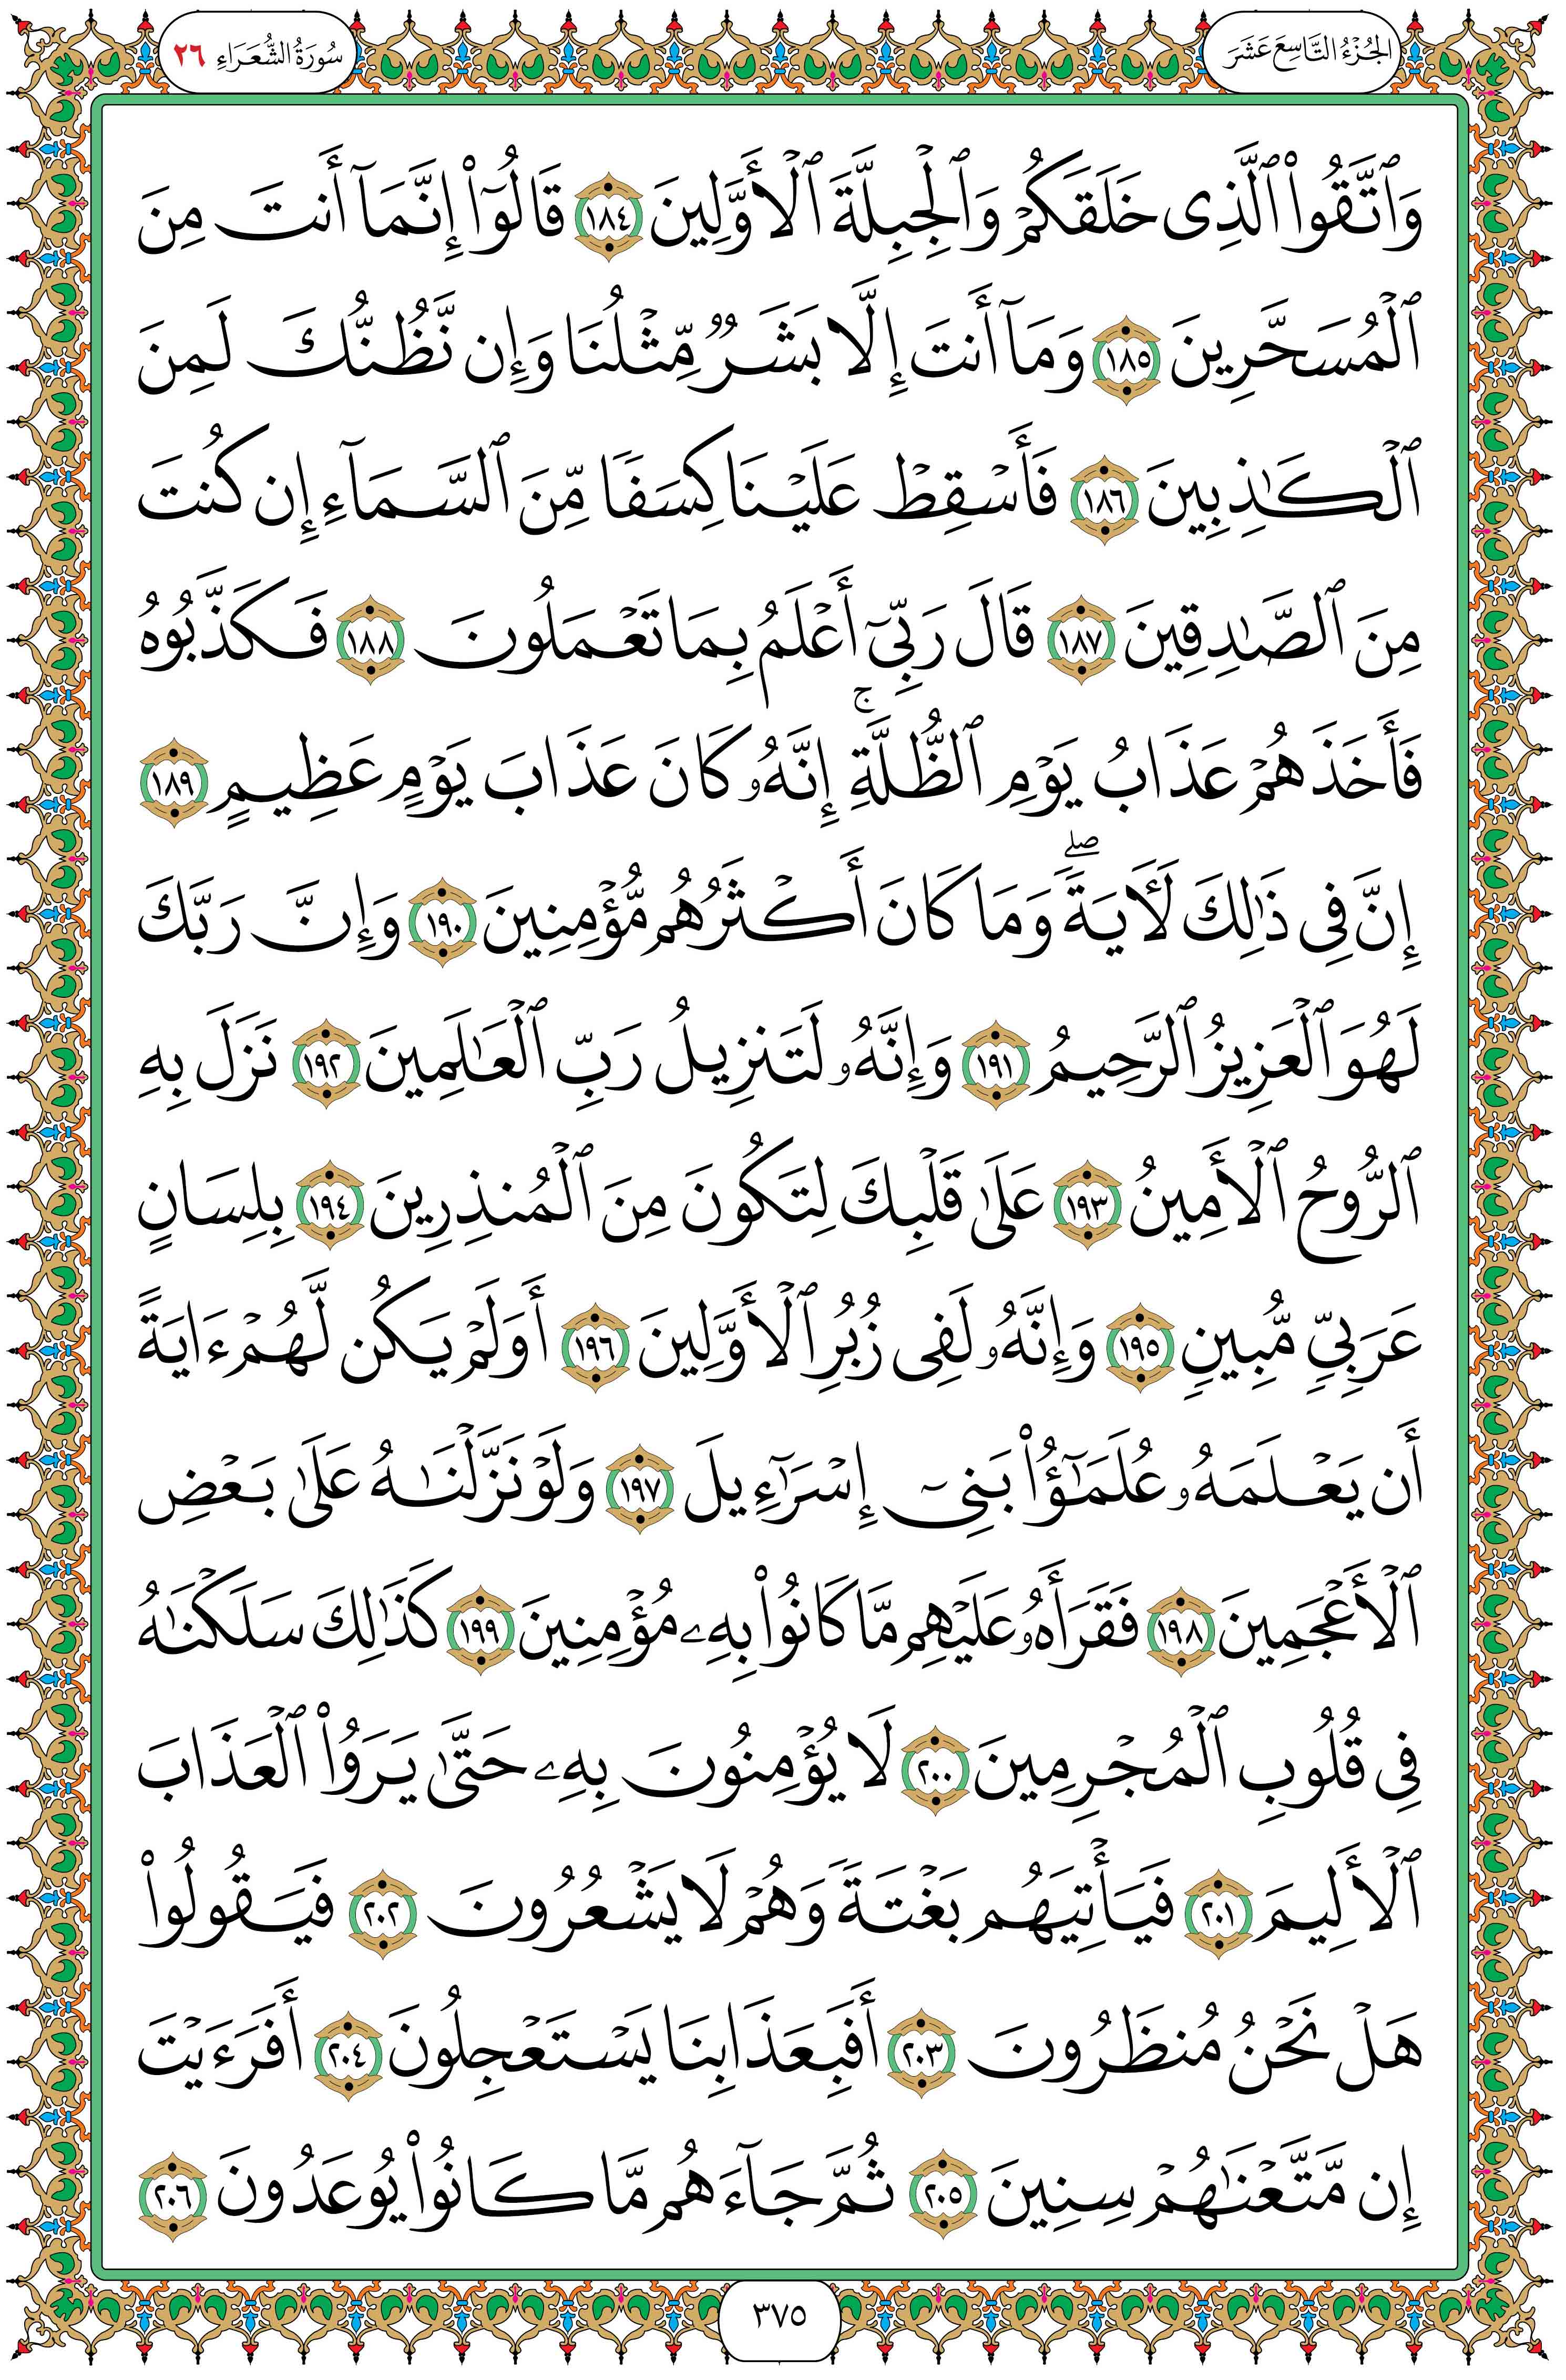 الجُزْءُ التَّاسِعَ عَشَرَ
سُورَةُ الشُّعَرَاءِ ٢٦
وَٱتَّقُوا۟ ٱلَّذِى خَلَقَكُمْ وَٱلْجِبِلَّةَ ٱلْأَوَّلِينَ ١٨٤ قَالُوٓا۟ إِنَّمَآ أَنتَ مِنَ
ٱلْمُسَحَّرِينَ ١٨٥ وَمَآ أَنتَ إِلَّا بَشَرٌ مِّثْلُنَا وَإِن نَّظُنُّكَ لَمِنَ
ٱلْكَـٰذِبِينَ ١٨٦ فَأَسْقِطْ عَلَيْنَا كِسَفًا مِّنَ ٱلسَّمَآءِ إِن كُنتَ
مِنَ ٱلصَّـٰدِقِينَ ١٨٧ قَالَ رَبِّىٓ أَعْلَمُ بِمَا تَعْمَلُونَ ١٨٨ فَكَذَّبُوهُ
فَأَخَذَهُمْ عَذَابُ يَوْمِ ٱلظُّلَّةِ ۚ إِنَّهُۥ كَانَ عَذَابَ يَوْمٍ عَظِيمٍ ١٨٩
إِنَّ فِى ذَٰلِكَ لَـَٔايَةً ۖ وَمَا كَانَ أَكْثَرُهُم مُّؤْمِنِينَ ١٩٠ وَإِنَّ رَبَّكَ
لَهُوَ ٱلْعَزِيزُ ٱلرَّحِيمُ ١٩١ وَإِنَّهُۥ لَتَنزِيلُ رَبِّ ٱلْعَـٰلَمِينَ ١٩٢ نَزَلَ بِهِ
ٱلرُّوحُ ٱلْأَمِينُ ١٩٣ عَلَىٰ قَلْبِكَ لِتَكُونَ مِنَ ٱلْمُنذِرِينَ ١٩٤ بِلِسَانٍ
عَرَبِىٍّ مُّبِينٍ ١٩٥ وَإِنَّهُۥ لَفِى زُبُرِ ٱلْأَوَّلِينَ ١٩٦ أَوَلَمْ يَكُن لَّهُمْ ءَايَةً
أَن يَعْلَمَهُۥ عُلَمَـٰٓؤُا۟ بَنِىٓ إِسْرَٰٓءِيلَ ١٩٧ وَلَوْ نَزَّلْنَـٰهُ عَلَىٰ بَعْضِ
ٱلْأَعْجَمِينَ ١٩٨ فَقَرَأَهُۥ عَلَيْهِم مَّا كَانُوا۟ بِهِۦ مُؤْمِنِينَ ١٩٩ كَذَٰلِكَ سَلَكْنَـٰهُ
فِى قُلُوبِ ٱلْمُجْرِمِينَ ٢٠٠ لَا يُؤْمِنُونَ بِهِۦ حَتَّىٰ يَرَوُا۟ ٱلْعَذَابَ
ٱلْأَلِيمَ ٢٠١ فَيَأْتِيَهُم بَغْتَةً وَهُمْ لَا يَشْعُرُونَ ٢٠٢ فَيَقُولُوا۟
هَلْ نَحْنُ مُنظَرُونَ ٢٠٣ أَفَبِعَذَابِنَا يَسْتَعْجِلُونَ ٢٠٤ أَفَرَءَيْتَ
إِن مَّتَّعْنَـٰهُمْ سِنِينَ ٢٠٥ ثُمَّ جَآءَهُم مَّا كَانُوا۟ يُوعَدُونَ ٢٠٦
٣٧٥